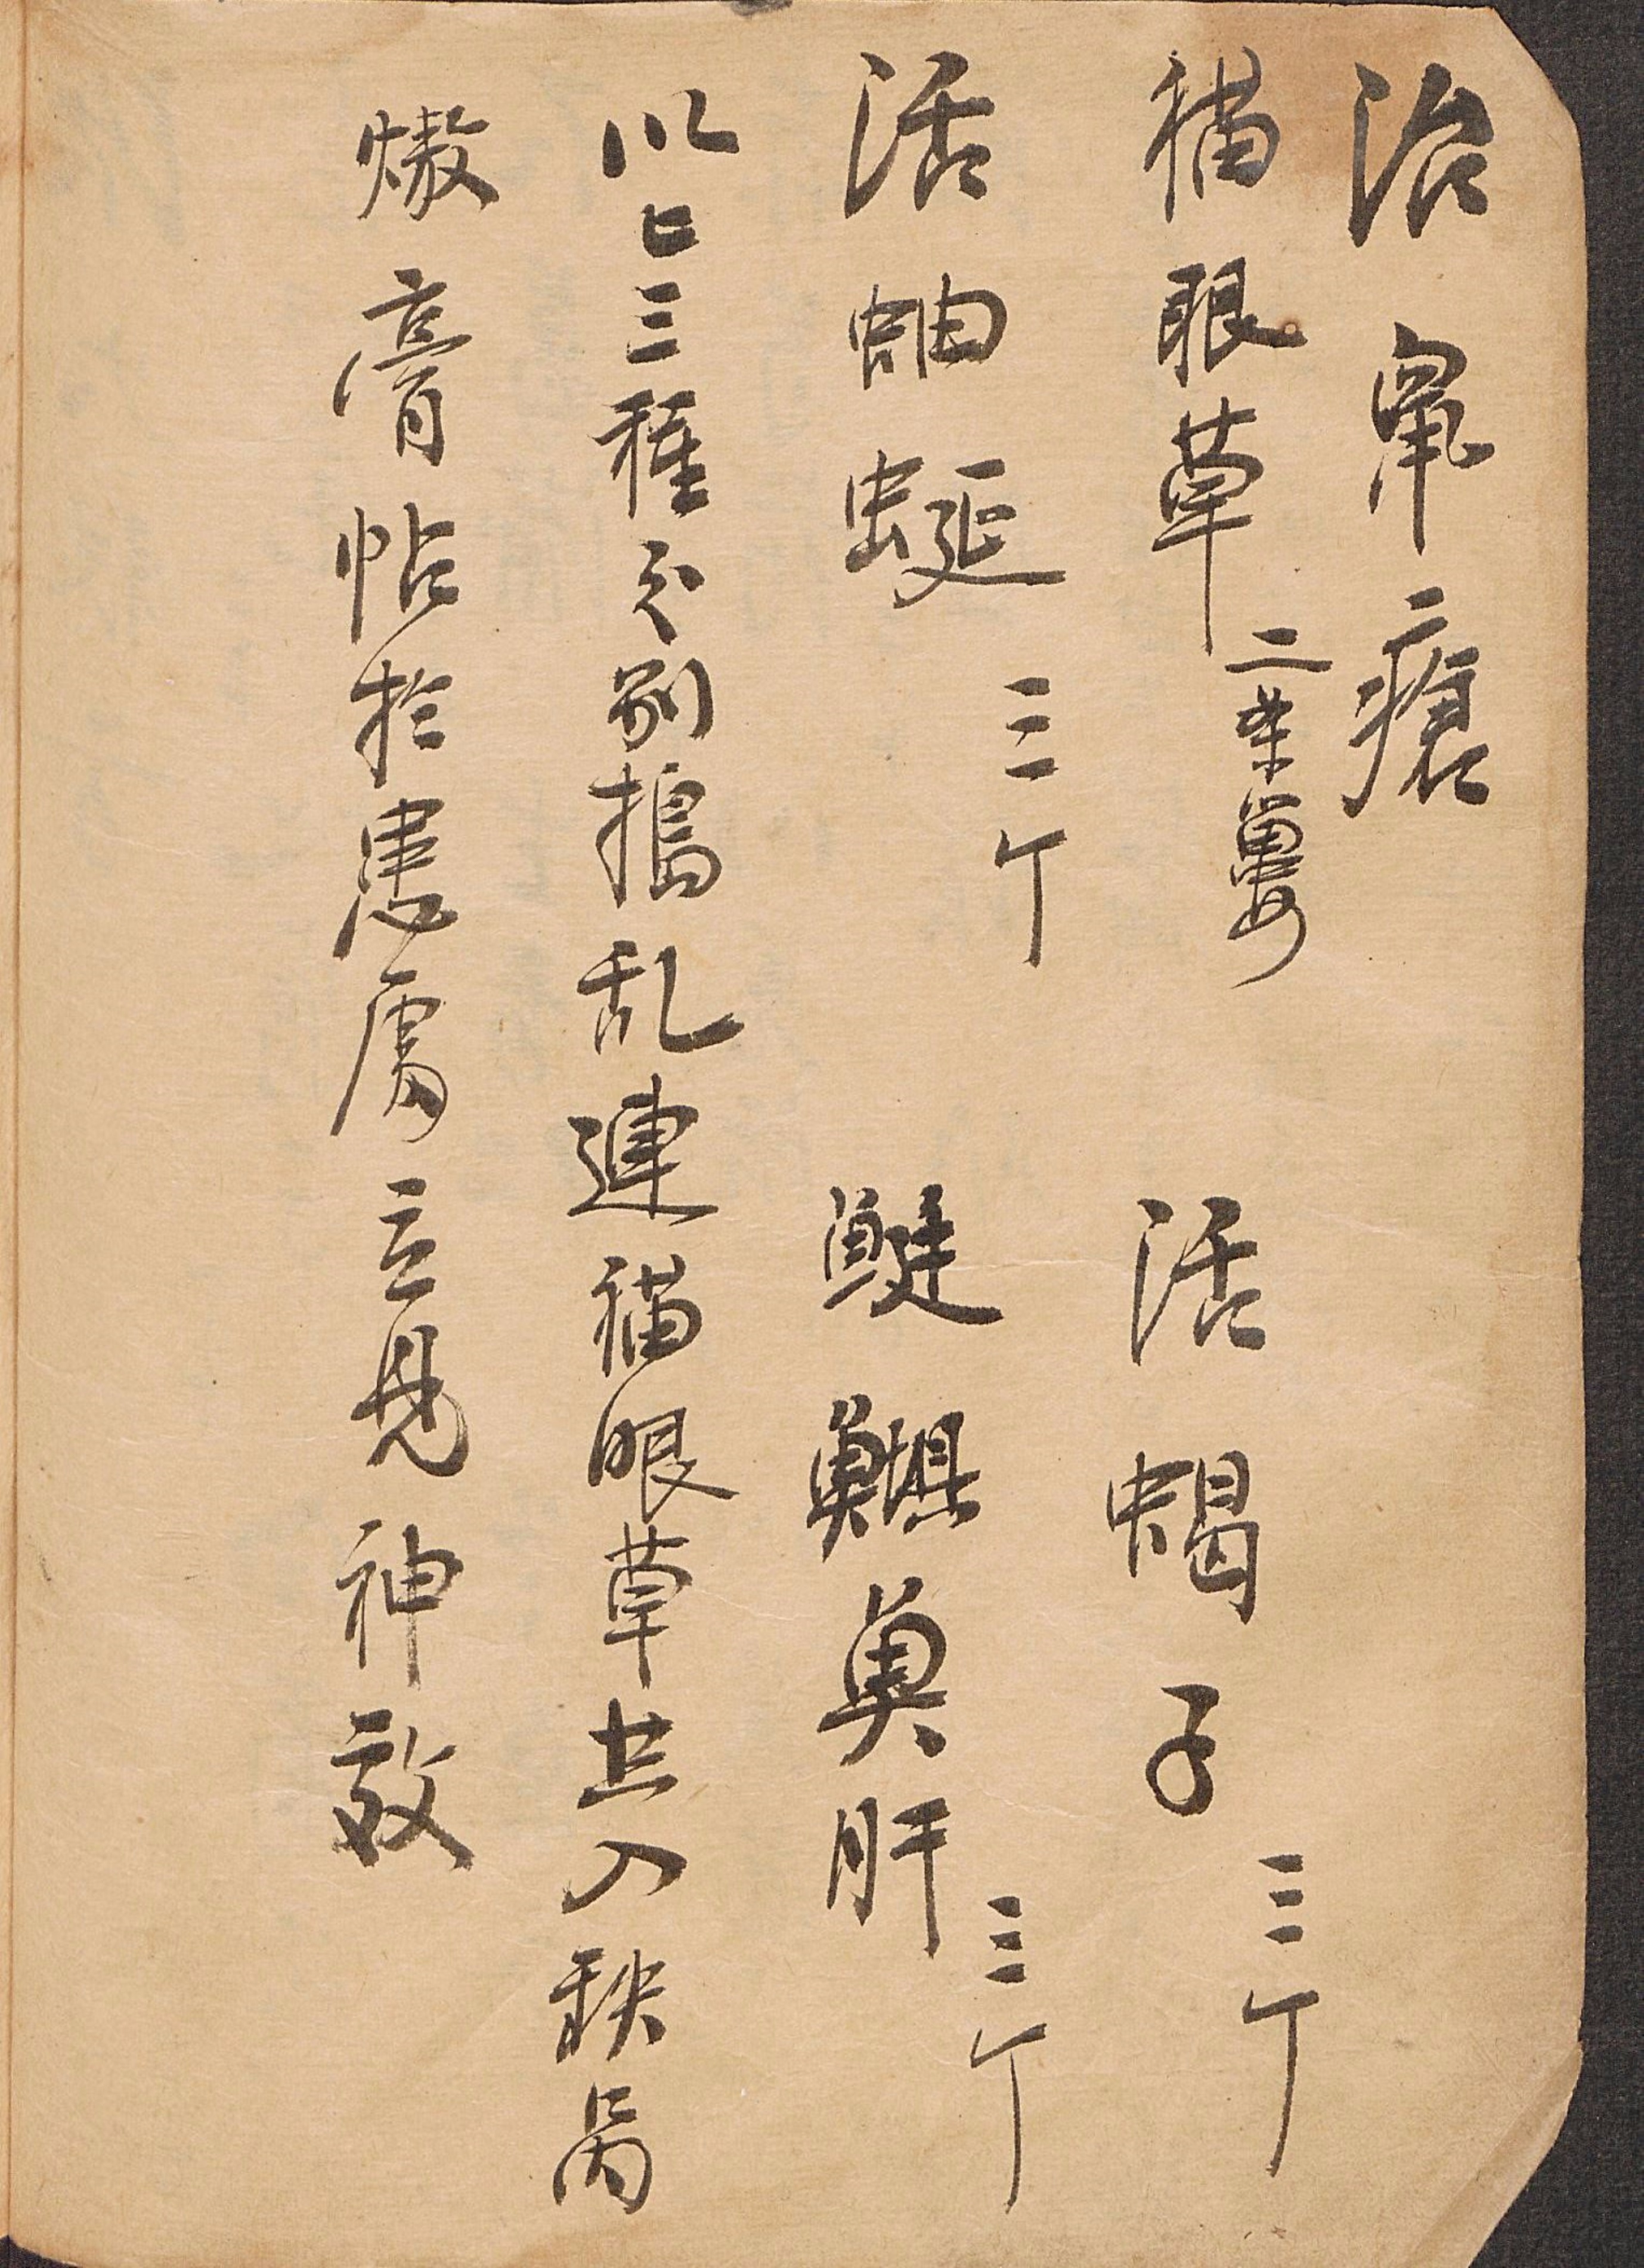 治鼠瘡
猫眼草二茶蔞 活蝎子三个
活蚰蜒三个 鰱魚肝三个
以上三種分別搗乱連猫眼草共入鉄鍋
熬膏帖於患處立見神效